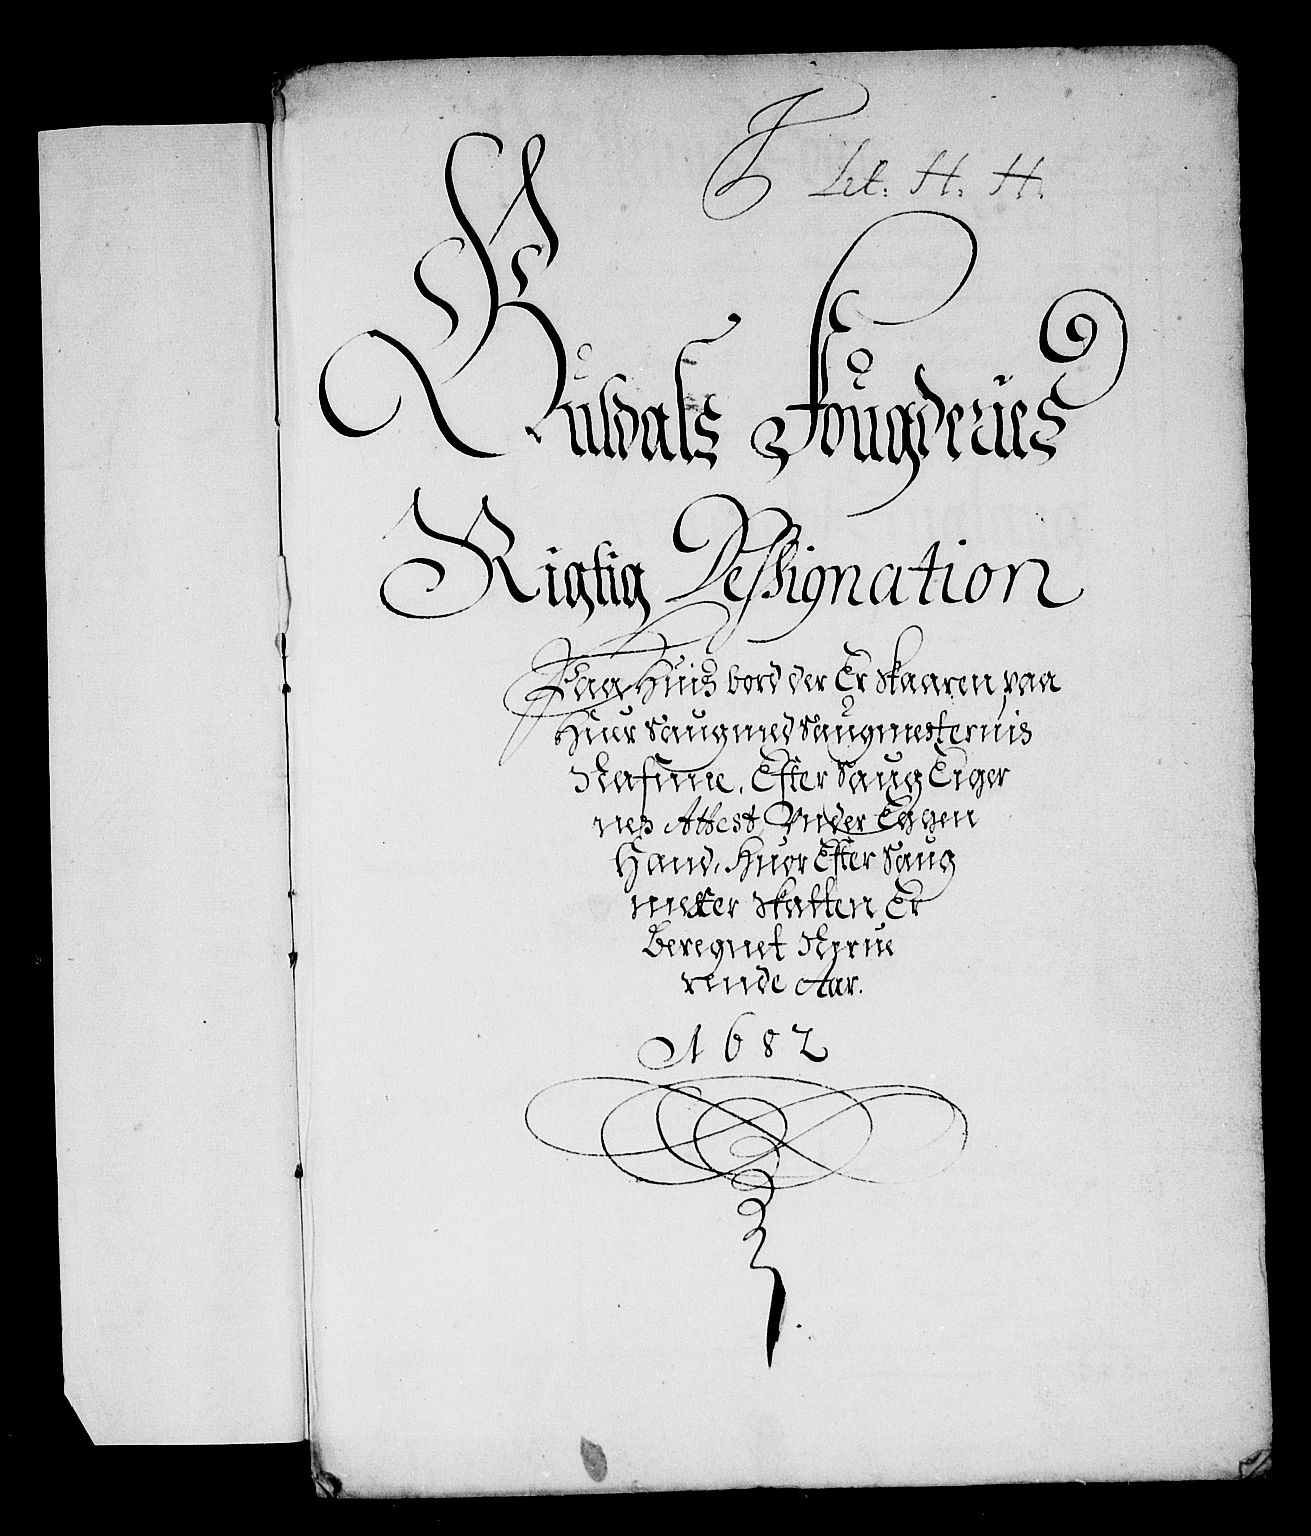 Lit: H. H.
Rusdals Fougderies
Rigtig Desshignation
Paa Huis bord der Er Skaaren paa
Huer Saug med Saugmesternis
Nafnne, Efter Saug Eiger
nes Attest Vnder Egen
Hand, Huor Efter Saug
mester Skatten Er
Beregnet Nerue
rende Aar.
1682